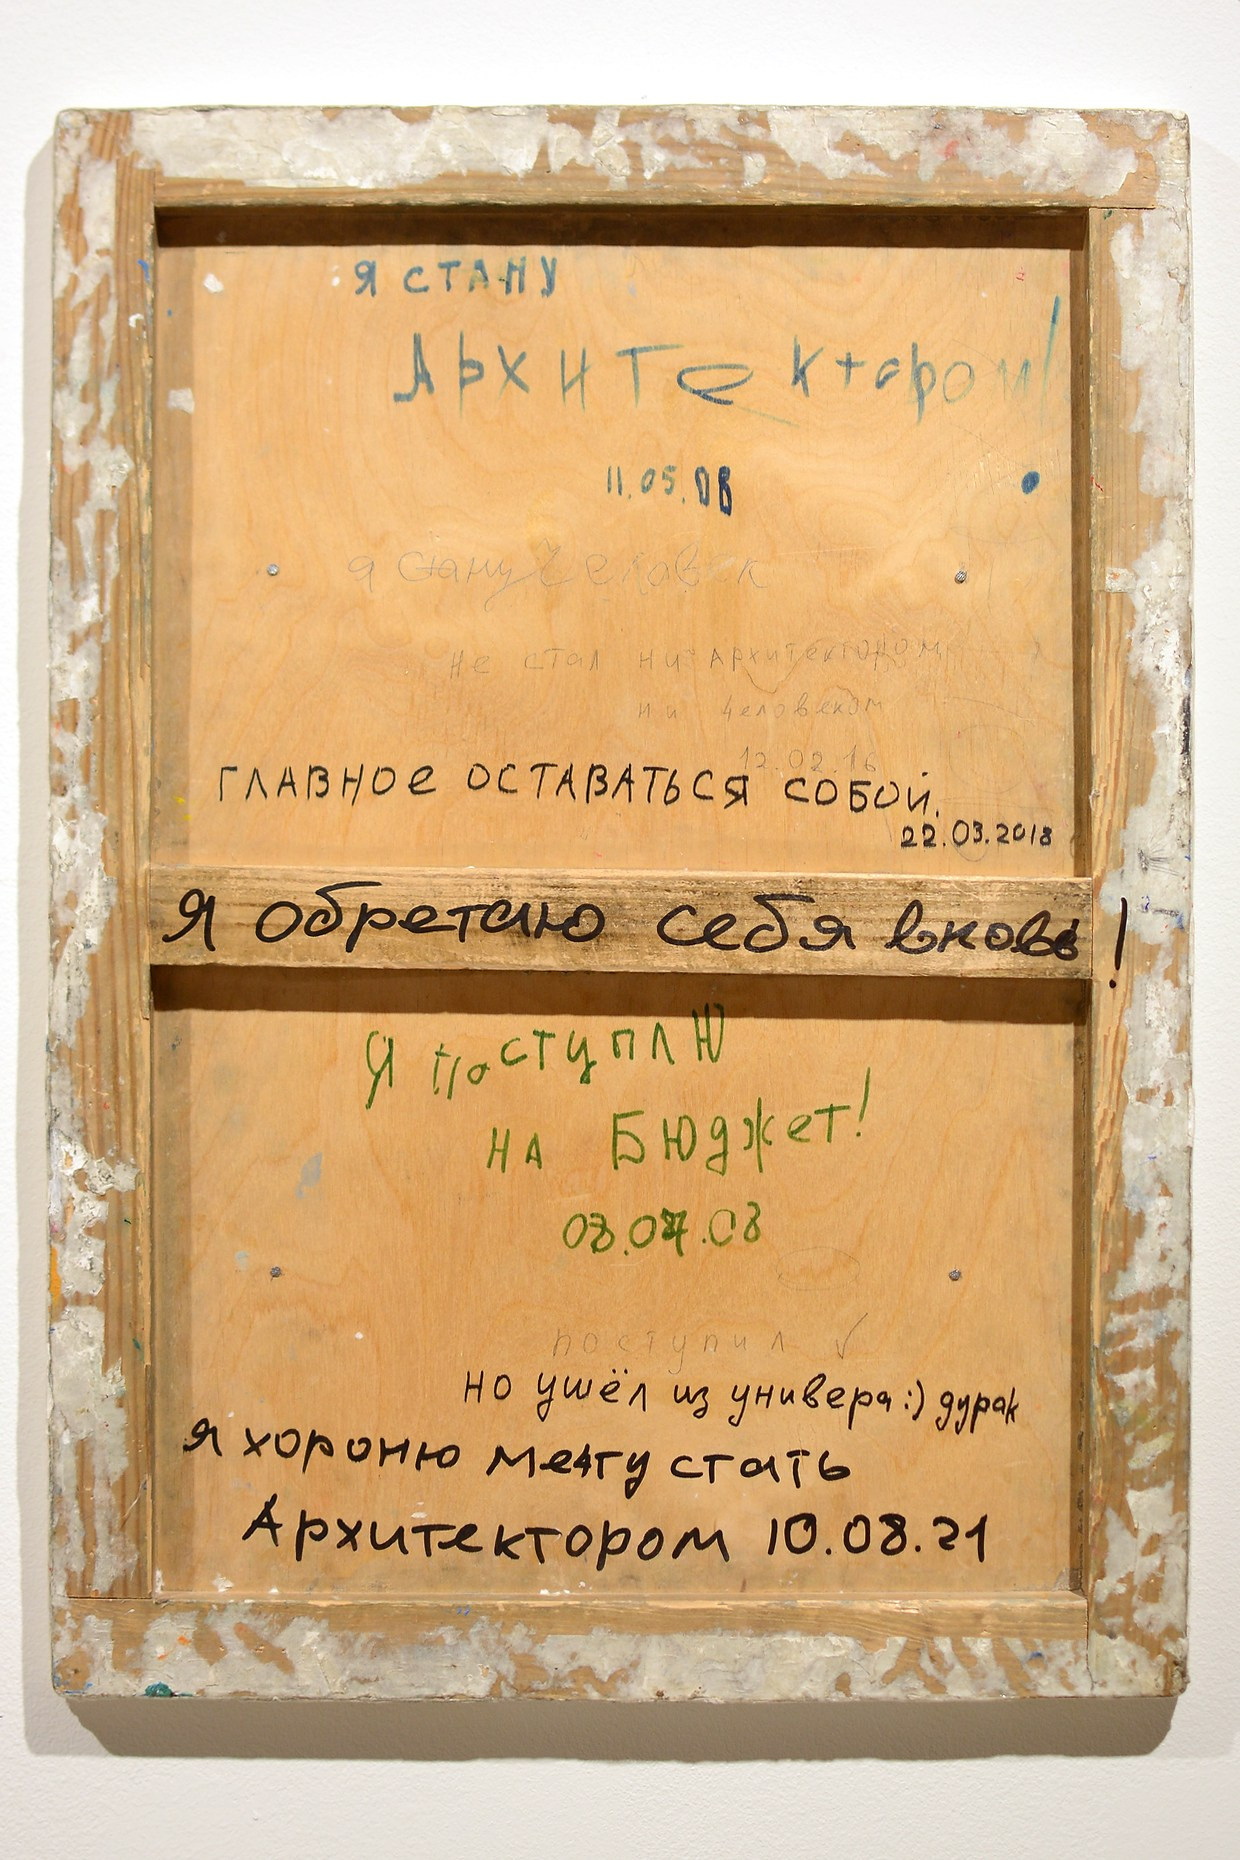 Я СТАНУ
АРХИТеКтором!
11.05.08
я стану Человек
не стал ни архитектором
ни человеком
12.02.16
ГЛАВНОе ОСТАВАТЬСЯ СОБОЙ.
22.03.2018
Я обретаю себя вновь!
Я поступлЮ
НА БЮДжет!
08.07.08
поступил ✓
но ушёл из универа :) дурак
я хороню мечту стать
Архитектором 10.08.21